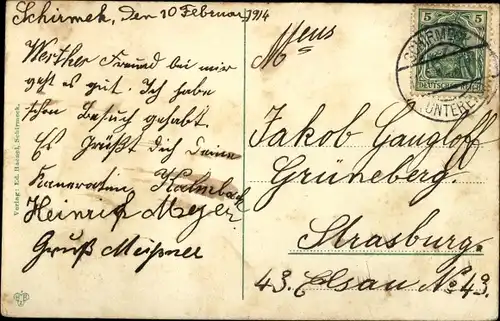 Schirmek, den 10 Februar 1914
Werther Freund bei mir
geht es gut. Ich habe
schon Besuch gehabt.
Es Grüßt dich deine
Kameraten Kalmbach
Heinrich Meyer.
Gruß Meißner
Jakob Gangloff
Grüneberg.
Strasburg.
43. Elsau No 43.
Verlag: Ed. Hänsel, Schirmeck.
5 5
DEUTSCHES REICH
SCHIRMECK
(UNTEREL